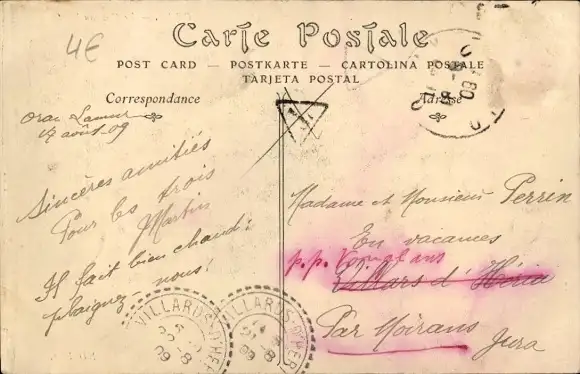 4€
Carte Postale
POST CARD — POSTKARTE — CARTOLINA POSTALE
TARJETA POSTAL
Correspondance
Adresse
Oran
17 août 09
Sincères amitiés
Pour les trois
Martin
Il fait bien chaud:
plaignez nous!
Madame et Monsieur Perrin
En vacances
p.p. Vouglans
Villars d'Héria
Par Moirans
Jura
VILLARDS-D'HÉR
VILLARDS-D'HÉR